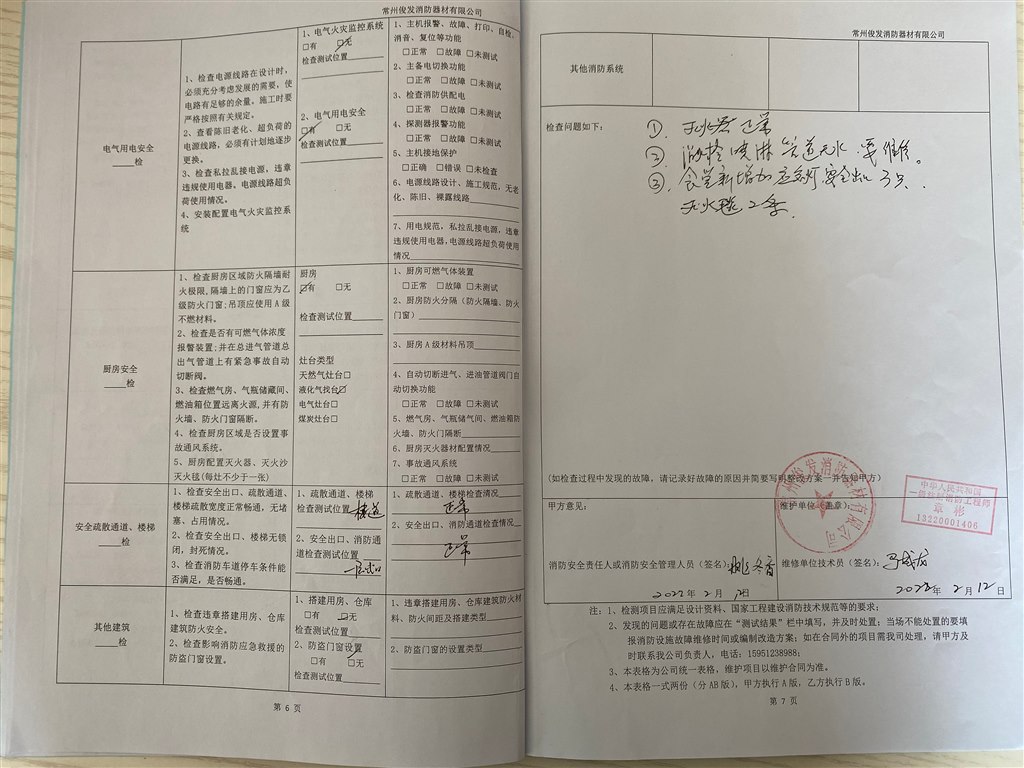 常州俊发消防器材有限公司
电气用电安全
____检
1、检查电源线路在设计时，
必须充分考虑发展的需要，使
电路有足够的余量。施工时要
严格按照有关规定。
2、查看陈旧老化、超负荷的
电源线路，必须有计划地逐步
更换。
3、检查私拉乱接电源，违章
违规使用电器。电源线路超负
荷使用情况。
4、安装配置电气火灾监控系
统
1、电气火灾监控系统
□有 ☑无
检查测试位置
2、电气用电安全
☑有 □无
检查测试位置
1、主机报警、故障、打印、自检、
消音、复位等功能
□正常 □故障 □未测试
2、主备电切换功能
□正常 □故障 □未测试
3、检查消防供配电
□正常 □故障 □未测试
4、探测器报警功能
□正常 □故障 □未测试
5、主机接地保护
□正确 □错误 □未检查
6、电源线路设计、施工规范，无老
化、陈旧、裸露线路
7、用电规范，私拉乱接电源，违章
违规使用电器，电源线路超负荷使用
情况
厨房安全
____检
1、检查厨房区域防火隔墙耐
火极限，隔墙上的门窗应为乙
级防火门窗；吊顶应使用A级
不燃材料。
2、检查是否有可燃气体浓度
报警装置；并在总进气管道总
出气管道上有紧急事故自动
切断阀。
3、检查燃气房、气瓶储藏间、
燃油箱位置远离火源，并有防
火墙、防火门窗隔断。
4、检查厨房区域是否设置事
故通风系统。
5、厨房配置灭火器、灭火沙
灭火毯（每灶不少于一张）
厨房
☑有 □无
检查测试位置
灶台类型
天然气灶台□
液化气找台☑
电气灶台□
煤炭灶台□
1、厨房可燃气体装置
□正常 □故障 □未测试
2、厨房防火分隔（防火隔墙、防火
门窗）
3、厨房A级材料吊顶
4、自动切断进气、进油管道阀门自
动切换功能
□正常 □故障 □未测试
5、燃气房、气瓶储气间、燃油箱防
火墙、防火门隔断
6、厨房灭火器材配置情况
7、事故通风系统
□正常 □故障 □未测试
安全疏散通道、楼梯
____检
1、检查安全出口、疏散通道、
楼梯疏散宽度正常畅通，无堵
塞、占用情况。
2、检查安全出口、楼梯无锁
闭，封死情况。
3、检查消防车道停车条件能
否满足，是否畅通。
1、疏散通道、楼梯
检查测试位置 楼道
2、安全出口、消防通
道检查测试位置
1、疏散通道、楼梯检查情况
正常
2、安全出口、消防通道检查情况
正常
其他建筑
____检
1、检查违章搭建用房、仓库
建筑防火安全。
2、检查影响消防应急救援的
防盗门窗设置。
1、搭建用房、仓库
□有 ☑无
检查测试位置
2、防盗门窗设置
□有 ☑无
检查测试位置
1、违章搭建用房、仓库建筑防火材
料、防火间距及搭建类型
2、防盗门窗的设置类型
第 6 页
常州俊发消防器材有限公司
其他消防系统
检查问题如下：
① 灭火器 正常
② 消防栓 喷淋 管道无水 要维修。
③ 食堂新增加 应急灯 安全出口 3只.
灭火毯 2条.
(如检查过程中发现的故障，请记录好故障的原因并简要写明整改方案一并告知甲方)
甲方意见：
维护单位（盖章）：
常州俊发消防器材有限公司
中华人民共和国
一级注册消防工程师
章 彬
13220001406
消防安全责任人或消防安全管理人员（签名）：姚冬香
维修单位技术员（签名）：
2022年 2月 12日
2022年 2月 12日
注：1、检测项目应满足设计资料、国家工程建设消防技术规范等的要求；
2、发现的问题或存在故障应在“测试结果”栏中填写，并及时处置；当场不能处置的要填
报消防设施故障维修时间或编制改造方案；如在合同外的项目需我司处理，请甲方及
时联系我公司负责人，电话：15951238988；
3、本表格为公司统一表格，维护项目以维护合同为准。
4、本表格一式两份（分AB版），甲方执行A版，乙方执行B版。
第 7 页